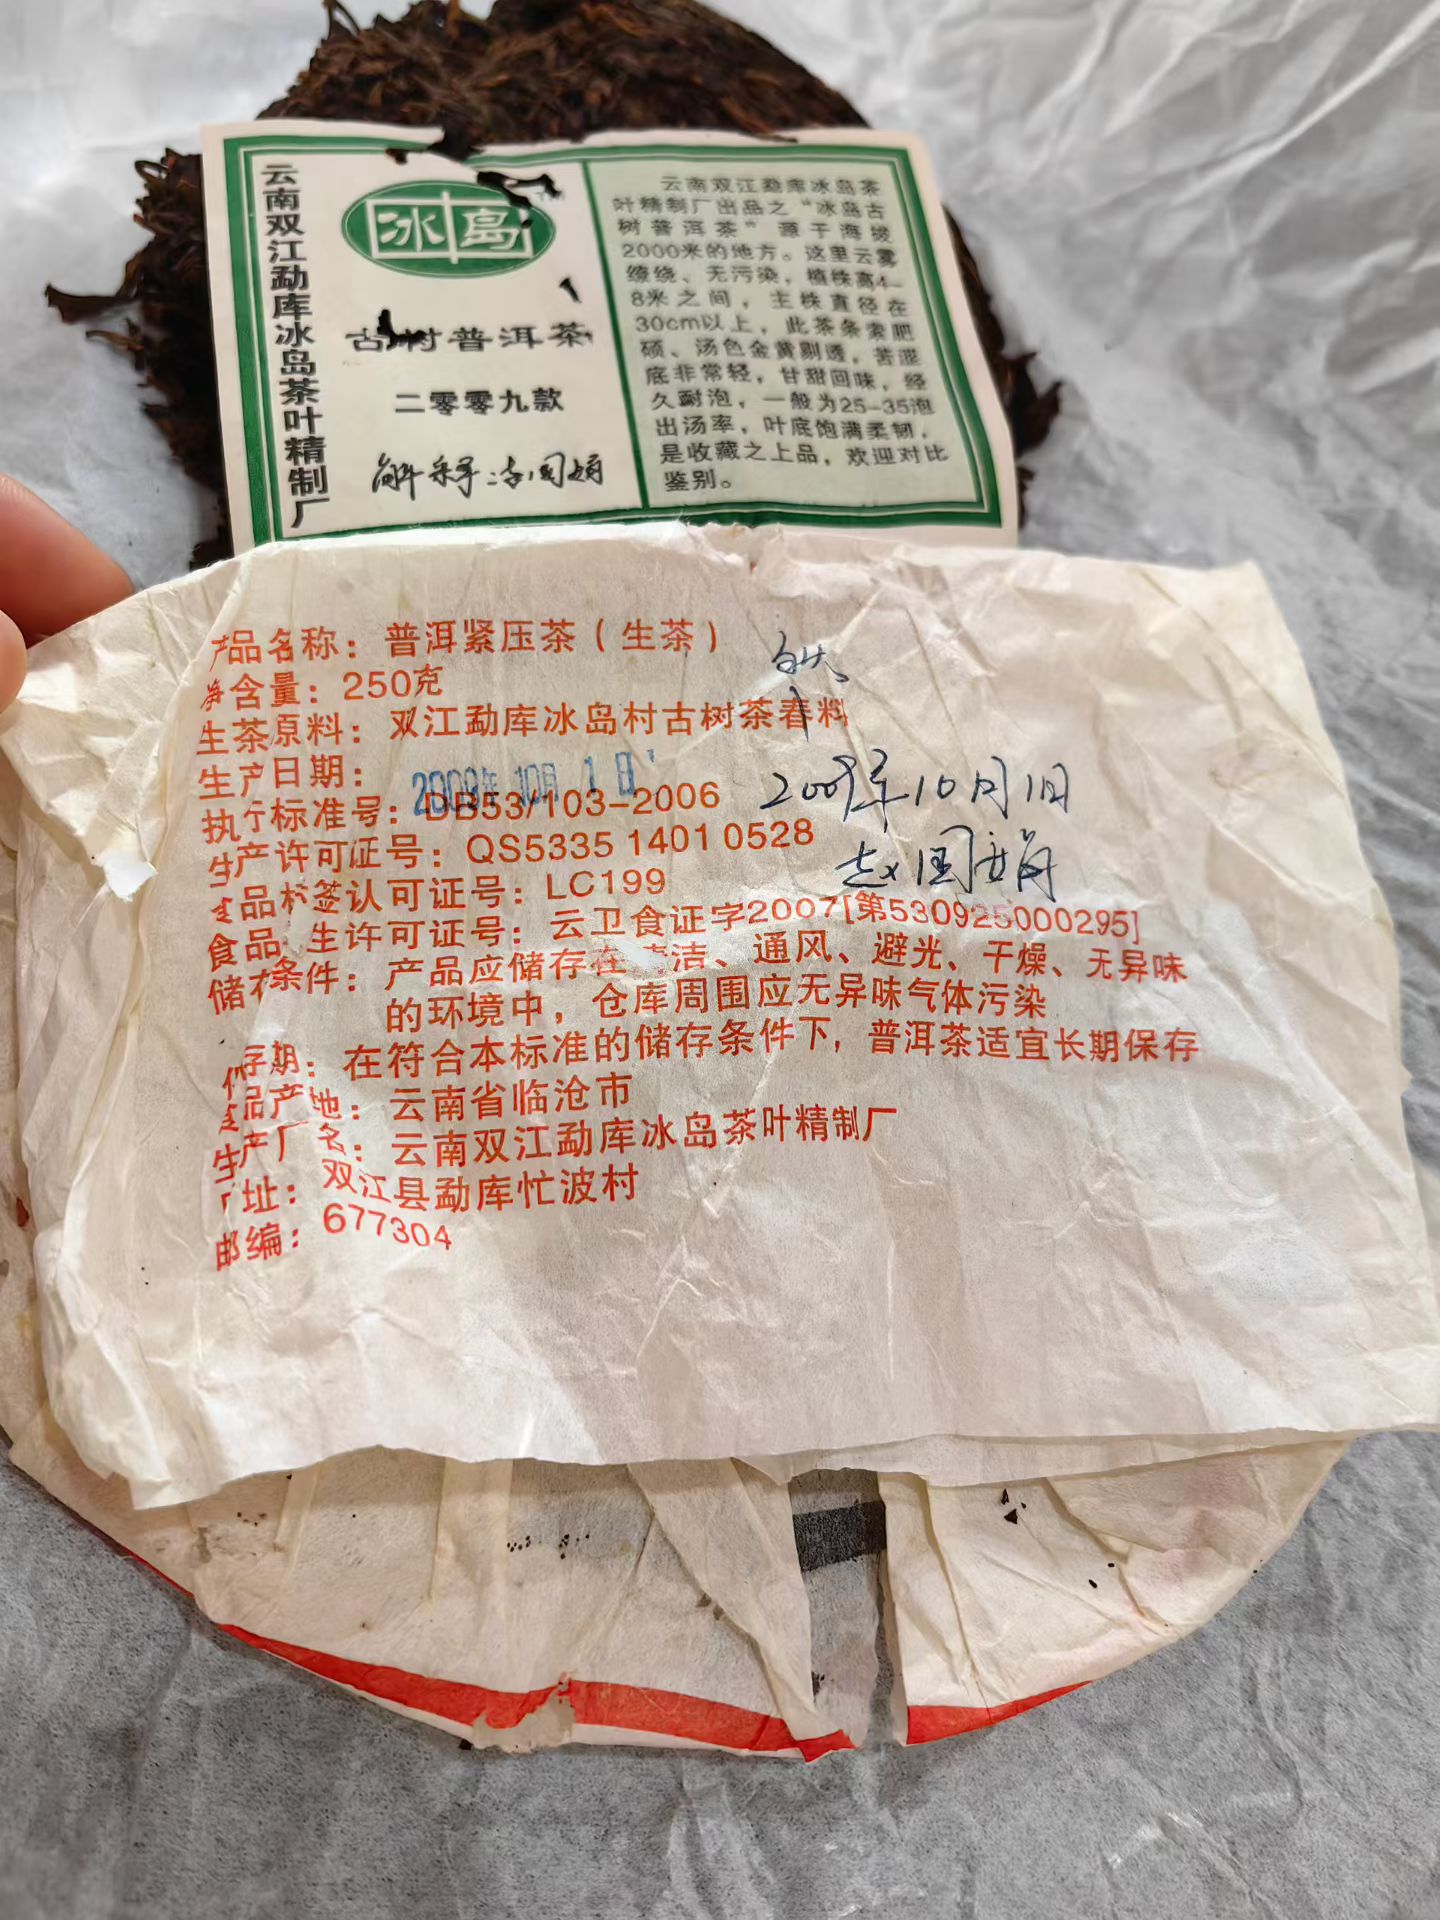 云南双江勐库冰岛茶叶精制厂
冰岛
古树普洱茶
二零零九款
云南双江勐库冰岛茶
叶精制厂出品之“冰岛古
树普洱茶”源于海拔
2000米的地方。这里云雾
缭绕、无污染，植株高4-
8米之间，主株直径在
30cm以上，此茶条索肥
硕、汤色金黄剔透，苦涩
底非常轻，甘甜回味，经
久耐泡，一般为25-35泡
出汤率，叶底饱满柔韧，
是收藏之上品，欢迎对比
鉴别。
产品名称：普洱紧压茶（生茶）
净含量：250克
生茶原料：双江勐库冰岛村古树茶春料
生产日期：2009年10月1日
2009年10月1日
执行标准号：DB53/103-2006
生产许可证号：QS5335 1401 0528
食品标签认可证号：LC199
食品 生许可证号：云卫食证字2007[第530925000295]
储存条件：产品应储存在清洁、通风、避光、干燥、无异味
的环境中，仓库周围应无异味气体污染
保存期：在符合本标准的储存条件下，普洱茶适宜长期保存
食品产地：云南省临沧市
生产厂名：云南双江勐库冰岛茶叶精制厂
厂址：双江县勐库忙波村
邮编：677304